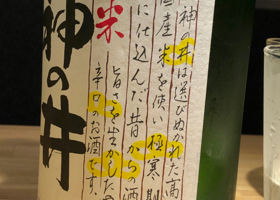 神の井は選びぬかれた高
産米を使い極寒期
に仕込んだ昔からの酒
旨さを生かした
辛口のお酒です。
米
神の井